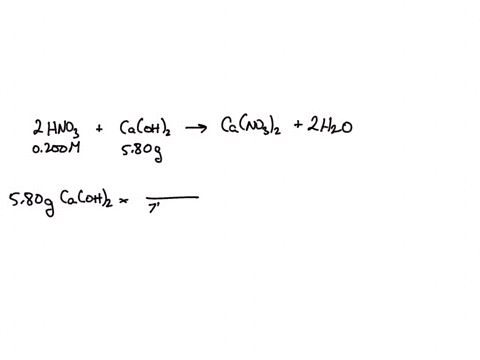 2HNO₃ + Ca(OH)₂ → Ca(NO₃)₂ + 2H₂O
0.200M 5.80g
5.80g Ca(OH)₂ ×
7